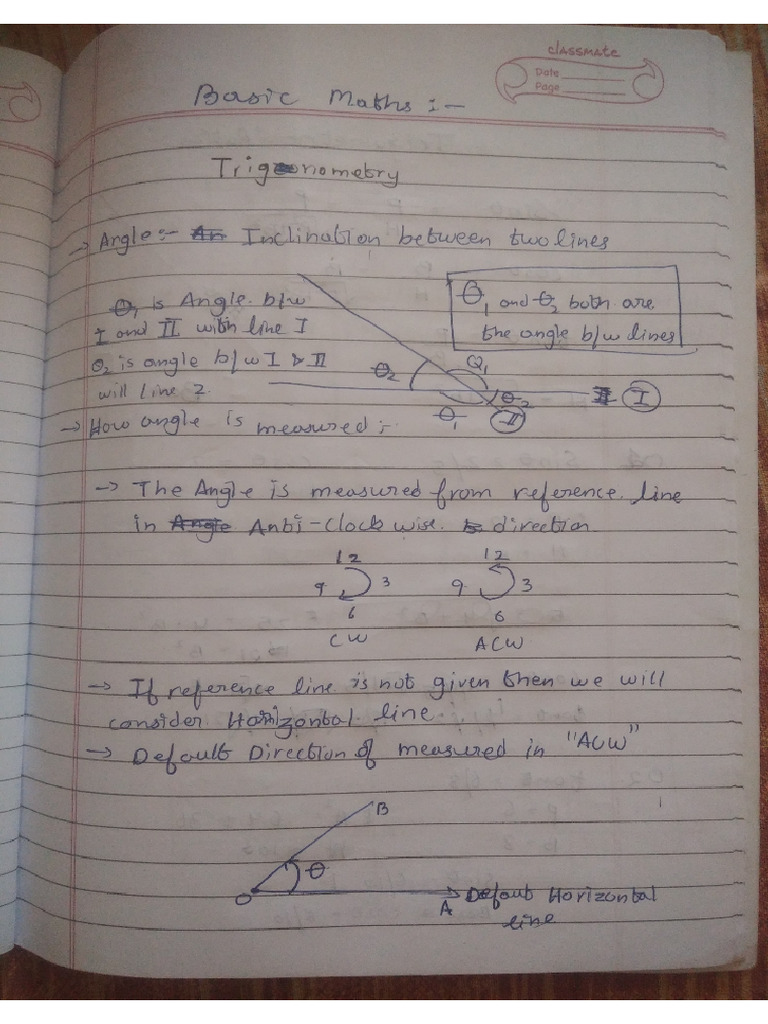 classmate
Date
Page
Basic Maths :-
Trigonometry
→ Angle :- Inclination between two lines
θ₁ is Angle b/w
I and II with line I
θ₂ is angle b/w I & II
will line 2
θ₁ and θ₂ both are
the angle b/w lines
θ₂ Q₁
θ₂ I
θ₁ II
→ How angle is measured :-
→ The Angle is measured from reference line
in Anti-Clock wise direction
12 12
9 3 9 3
6 6
CW ACW
→ If reference line is not given then we will
consider Horizontal line
→ Default Direction of measured in "ACW"
B
θ
O A Default Horizontal
line